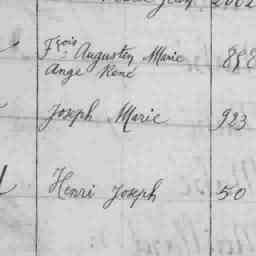 2002
Frois Augustin Marie 898
Ange René
Joseph Marie 923
Henri Joseph 50